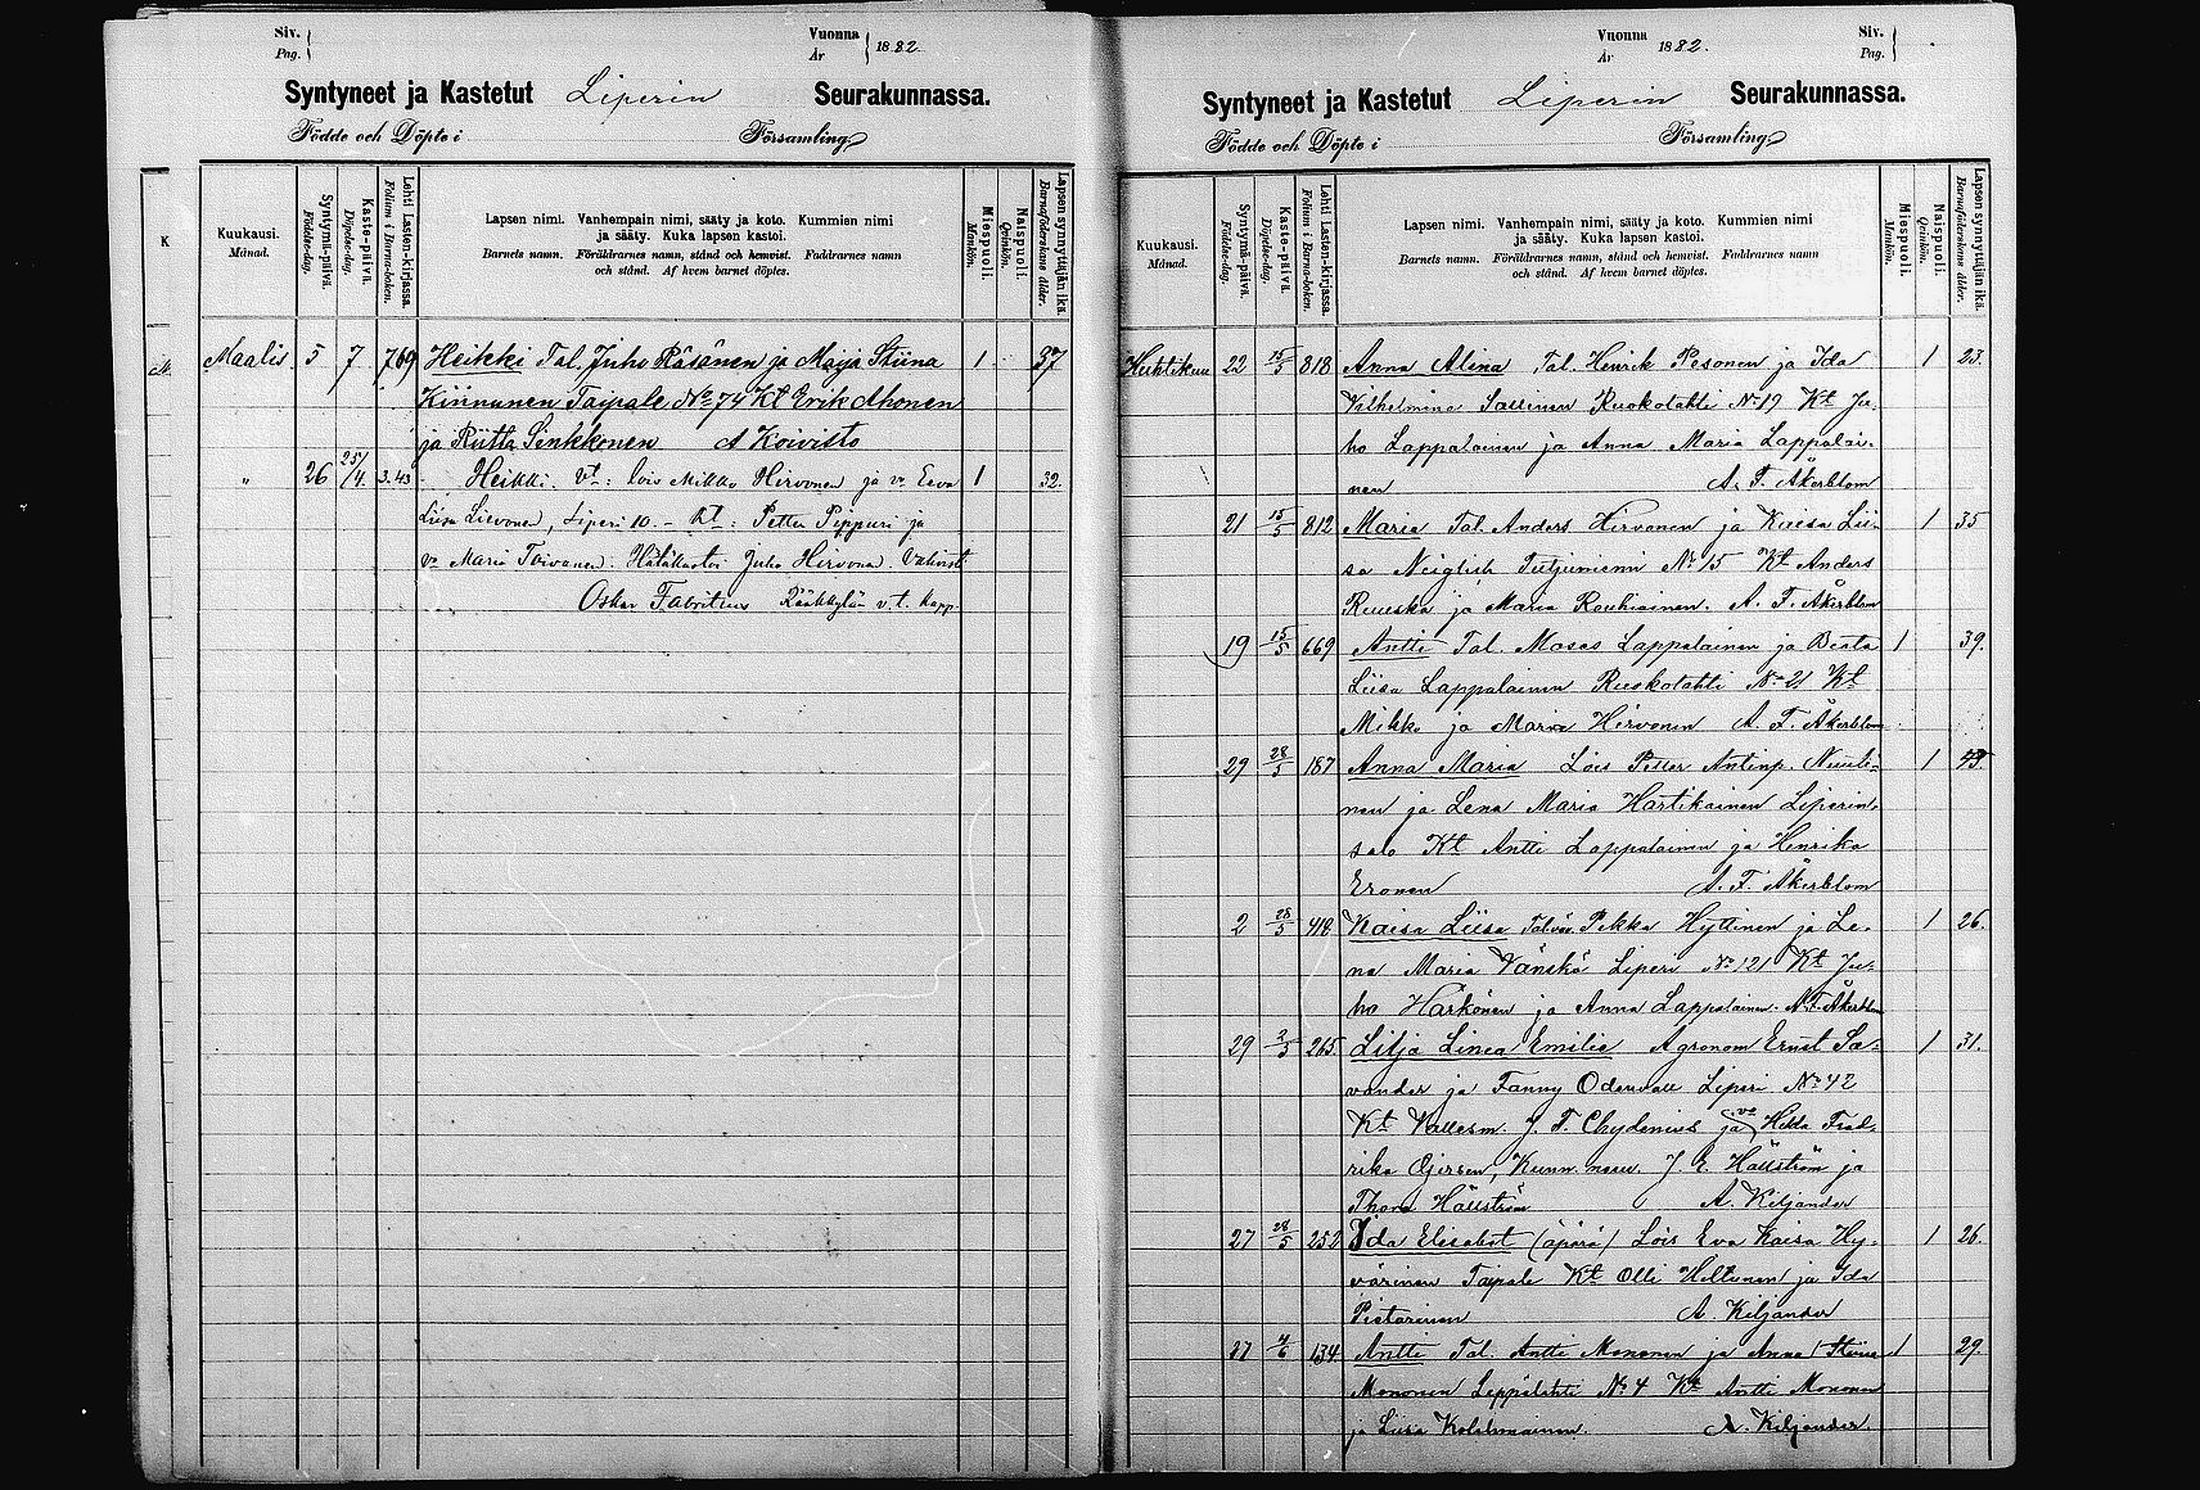 Siv.
Pag.
Vuonna
År
1882.
Syntyneet ja Kastetut Liperin Seurakunnassa.
Födde och Döpte i Församling.
K
Kuukausi.
Månad.
Syntymä-päivä.
Födelse-dag.
Kaste-päivä.
Döpelse-dag.
Lehti Lasten-kirjassa.
Folium i Barna-boken.
Lapsen nimi. Vanhempain nimi, sääty ja koto. Kummien nimi
ja sääty. Kuka lapsen kastoi.
Barnets namn. Föräldrarnes namn, stånd och hemvist. Faddrarnes namn
och stånd. Af hvem barnet döptes.
Miespuoli.
Mankön.
Naispuoli.
Qvinkön.
Lapsen synnyttäjän ikä.
Barnaföderskans ålder.
Maalis. 5 7 769 Heikki Tal. Juho Räsänen ja Maija Stiina 1 37
Kinnunen Taipale No 74 Kt Erik Ahonen
ja Riitta Sinkkonen A Koivisto
" 26 25/4. 343 Heikki. Vt: lois Mikko Hirvonen ja vo Eeva 1 32.
Liisa Lievonen, Liperi 10. - Kt: Petter Pippuri ja
vo Maria Toivanen. Hätäkastoi Juho Hirvonen. Vahvist.
Oskar Fabritius Rääkkylän v.t. kapp.
Vuonna
År
1882.
Siv.
Pag.
Syntyneet ja Kastetut Liperin Seurakunnassa.
Födde och Döpte i Församling.
Kuukausi.
Månad.
Syntymä-päivä.
Födelse-dag.
Kaste-päivä.
Döpelse-dag.
Lehti Lasten-kirjassa.
Folium i Barna-boken.
Lapsen nimi. Vanhempain nimi, sääty ja koto. Kummien nimi
ja sääty. Kuka lapsen kastoi.
Barnets namn. Föräldrarnes namn, stånd och hemvist. Faddrarnes namn
och stånd. Af hvem barnet döptes.
Miespuoli.
Mankön.
Naispuoli.
Qvinkön.
Lapsen synnyttäjän ikä.
Barnaföderskans ålder.
Huhtikuu 22 15/5 818 Anna Alina Tal. Henrik Pesonen ja Ida 1 23.
Vilhelmina Sallinen Ruokolahti No 19 Kt Ju-
ho Lappalainen ja Anna Maria Lappalai-
nen A. F. Åkerblom
21 15/5 812 Maria Tal. Anders Hirvonen ja Kaisa Lii- 1 35
sa Neiglick Tutjuniemi No 15 Kt Anders
Ruuska ja Maria Rouhiainen. A. F. Åkerblom
19 15/5 669 Antti Tal. Moses Lappalainen ja Beata 1 39.
Liisa Lappalainen Ruokolahti No 21 Kt
Mikko ja Maria Hirvonen A. F. Åkerblom
29 28/5 187 Anna Maria Lois Petter Antinp. Nuuti- 1 43.
nen ja Lena Maria Hartikainen Liperin-
salo Kt Antti Lappalainen ja Henrika
Eronen A. F. Åkerblom
2 28/5 418 Kaisa Liisa Talväv. Pekka Hyttinen ja Le- 1 26.
na Maria Vänskä Liperi No 121 Kt Ju-
ho Härkönen ja Anna Lappalainen. A. F. Åkerblom
29 2/5 265. Lilja Linea Emilie Agronom Ernst Sa- 1 31.
vander ja Fanny Odenvall Liperi No 42
Kt Vallesm. J. F. Chydenius ja vo Hilda Fred-
rika Ojersen, Kunn. neuv. J. E. Hällström ja
Thora Hällström A. Kiljander
27 28/5 252 Ida Elisabet (äpärä) Lois Eva Kaisa Hy- 1 26.
värinen Taipale Kt Olli Hiltunen ja Ida
Pietarinen A. Kiljander
27 4/6 134 Antti Tal. Antti Mononen ja Anna Stiina 1 29.
Mononen Leppälahti No 4 Kt Antti Mononen
ja Liisa Kolehmainen. A. Kiljander.